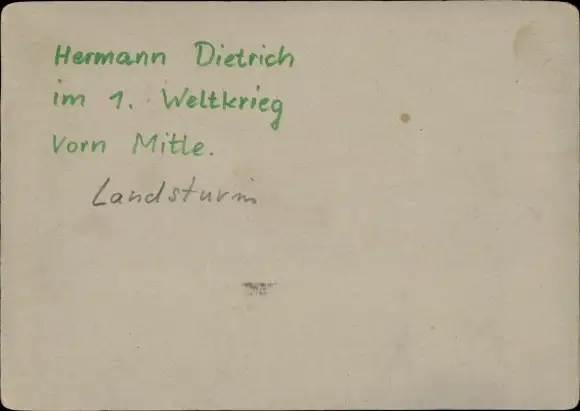 Hermann Dietrich
im 1. Weltkrieg
Vorn Mitte.
Landsturm